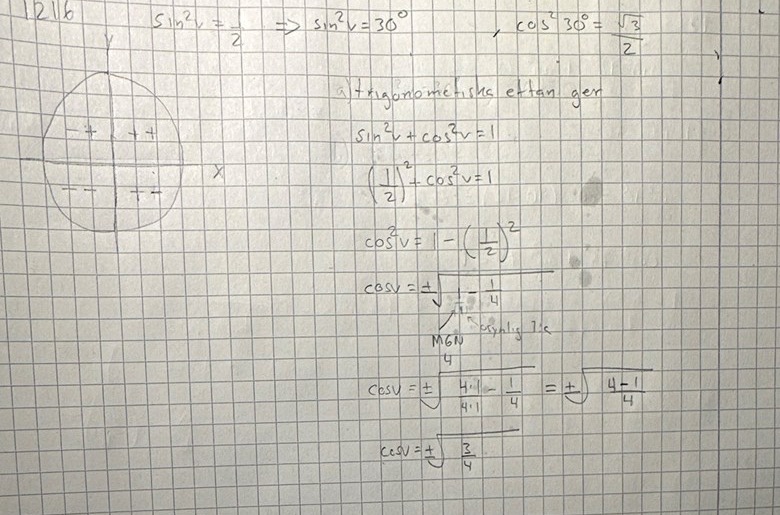 1216
sin²v = 1/2 => sin²v = 30° , cos²30° = √3/2
y
a) trigonometiska ettan ger
- + + +
sin²v + cos²v = 1
x
(1/2)² + cos²v = 1
- - + +
cos²v = 1 - (1/2)²
cosv = ±√(1/1 - 1/4)
osynlig 1:a
MGN
4
cosv = ±√(4·1/4·1 - 1/4) = ±√(4-1/4)
cosv = ±√(3/4)